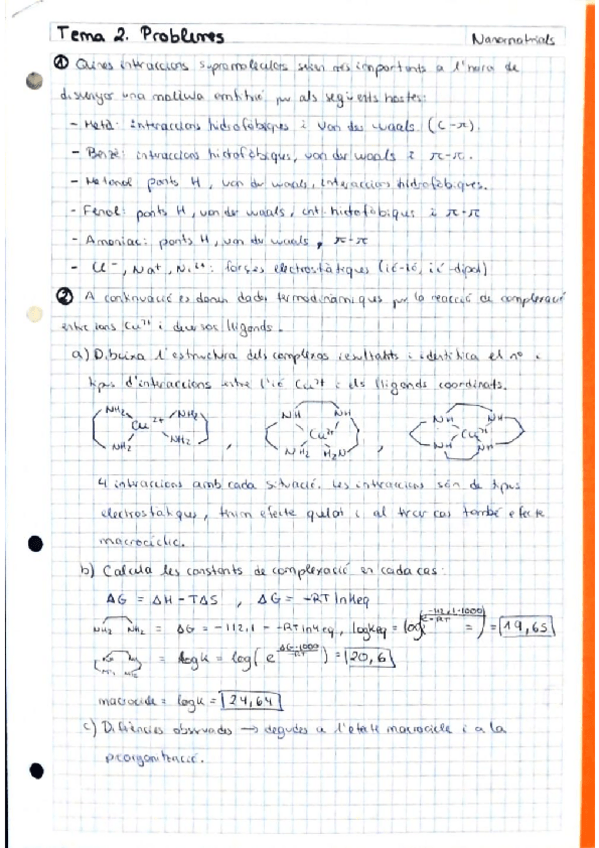 Tema 2. Problemes Nanomaterials
① Quines interaccions supramoleculars seran més importants a l'hora de
dissenyar una molècula amfitrió per als següents hostes:
- Metà: interaccions hidrofòbiques i Van der waals (C-π).
- Benzè: interaccions hidrofòbiques, van der waals i π-π.
- Metanol ponts H, van der waals, interaccions hidrofòbiques.
- Fenol: ponts H, van der waals, int. hidrofòbiques i π-π
- Amoniac: ponts H, van der waals, π-π
- Cl⁻, Na⁺, Ni²⁺: forces electrostàtiques (ió-ió, ió-dipol)
② A continuació es donen dades termodinàmiques per la reacció de complexació
entre ions Cu²⁺ i diversos lligands.
a) Dibuixa l'estructura dels complexos resultants i identifica el nº i
tipus d'interaccions entre l'ió Cu²⁺ i els lligands coordinats.
NH₂ NH₂ Cu²⁺ NH₂ NH₂ , NH NH Cu²⁺ NH₂ H₂N , NH NH Cu²⁺ NH NH
4 interaccions amb cada situació. Les interaccions són de tipus
electrostàtiques, tenim efecte quelat i al tercer cas també efecte
macrocíclic.
b) Calcula les constants de complexació en cada cas:
ΔG = ΔH - TΔS , ΔG = -RT lnKeq
NH₂ NH₂ = ΔG = -112,1 = -RT lnKeq, logKeq = log(e^(-112,1·1000/-RT) = ) = 19,65
NH NH NH₂ NH₂ = logK = log(e^(ΔG·1000/-RT)) = 20,6
macrocicle = logK = 24,64
c) Diferències observades → degudes a l'efecte macrocicle i a la
preorganització.